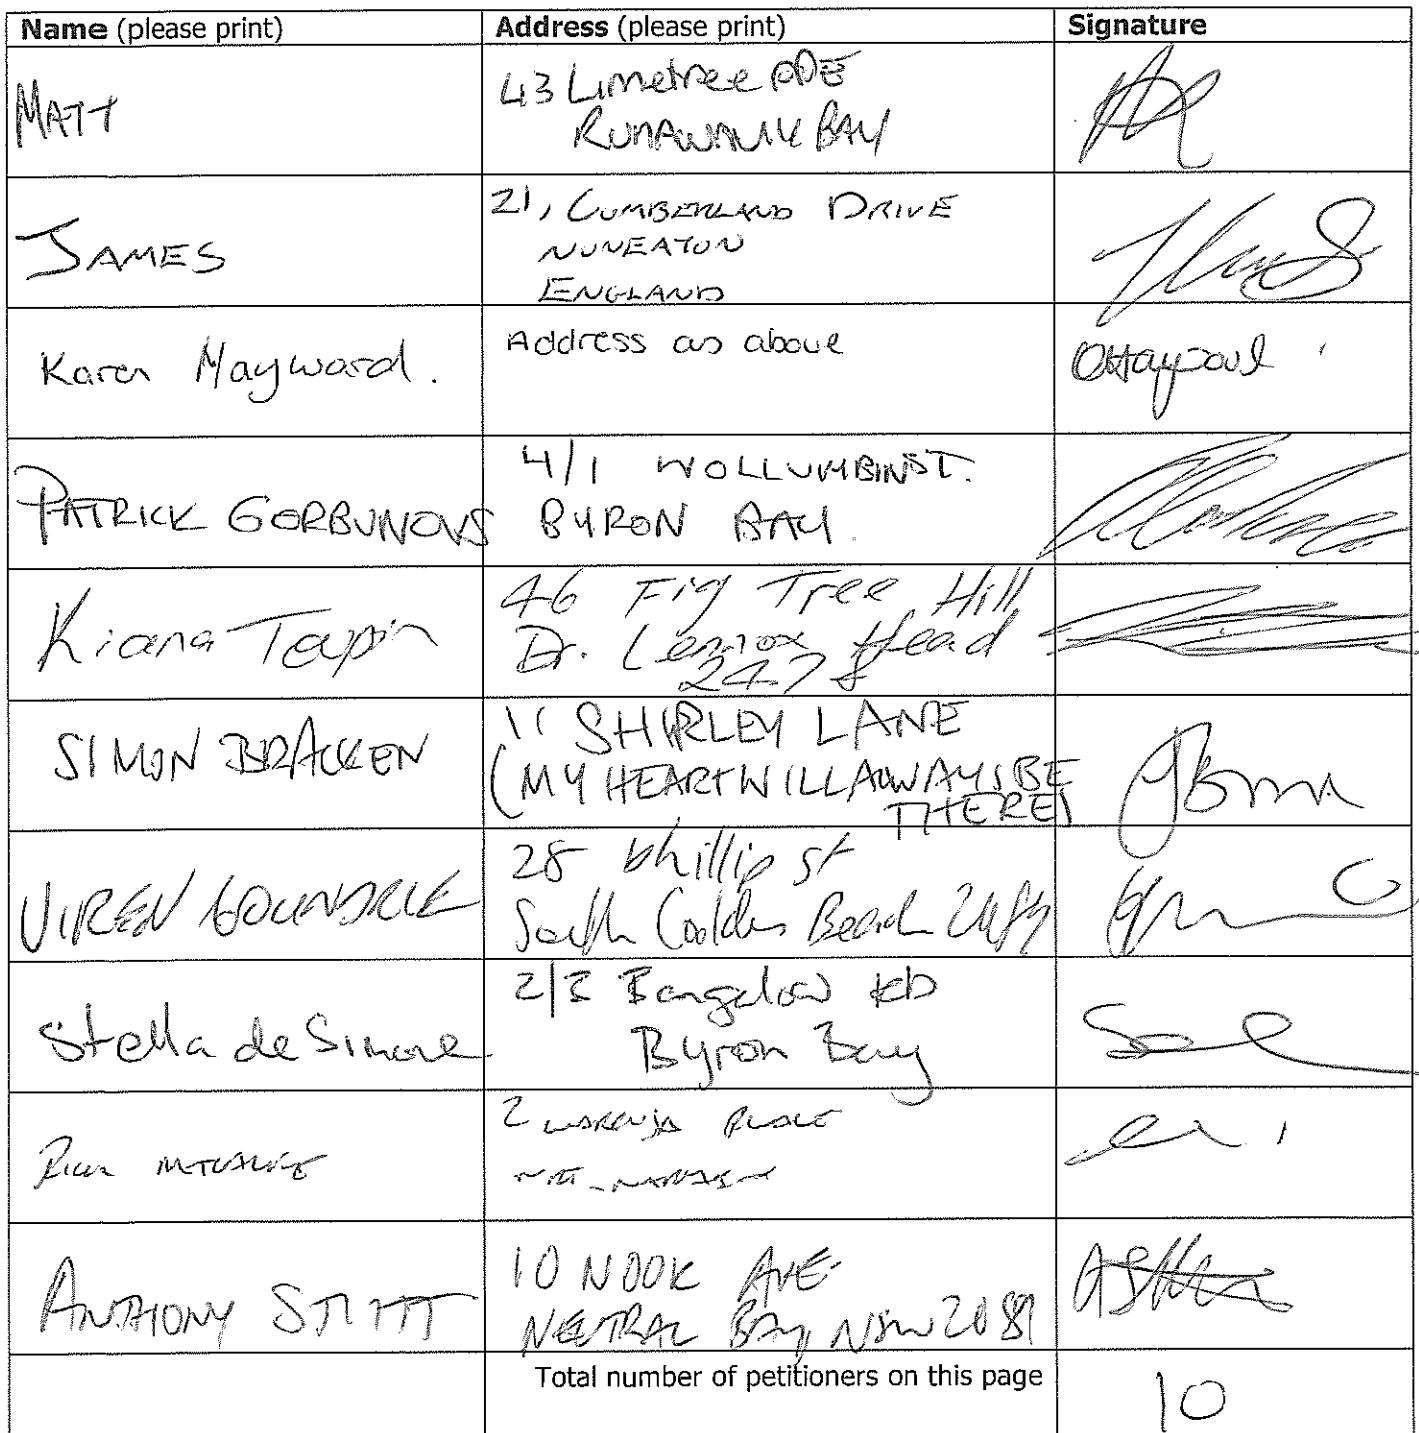 Name (please print) Address (please print) Signature
MATT
43 Limetree PDE
RUNAWAY BAY
JAMES
21, CUMBERLAND DRIVE
NUNEATON
ENGLAND
Karen Hayward.
Address as above
PATRICK GORBUNOVS
4/1 WOLLUMBIN ST.
BYRON BAY.
Kiana Taupin
46 Fig Tree Hill
Dr. Lennox Head
2478
SIMON BRACKEN
11 SHIRLEY LANE
(MY HEART WILL ALWAYS BE
THERE)
VIREN
28 Phillip St
South Golden Beach 2483
Stella de Simone
2/3 Bangalow RD
Byron Bay
2 PLACE
ANTHONY STITT
10 NOOK AVE
NEUTRAL BAY, NSW 2089
Total number of petitioners on this page
10